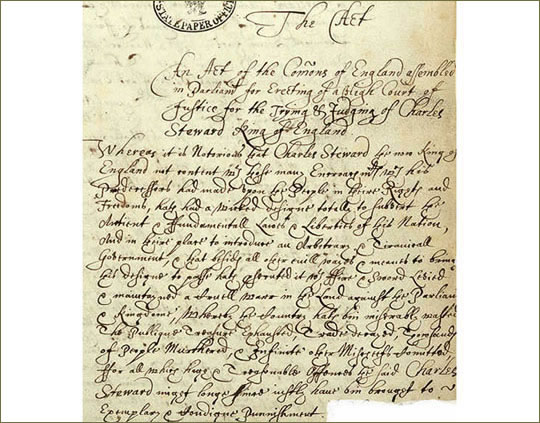 STATE PAPER OFFICE
The Act
An Act of the Comons of England assembled
in Parliamt for Erecting of a High Court of
Justice for the Trying & Judging of Charles
Steward King of England
Whereas it is Notorious that Charles Steward the now King of
England not content wth those many Encroachmts wch his
Predecessors had made upon the People in their Rights and
Freedoms, hath had a wicked designe totally to subvert the
Antient & Fundamentall Lawes & Liberties of this Nation,
And in their place to introduce an Arbitrary & Tiranicall
Government, & that besides all other evill wayes & meanes to bring
his designe to passe hath prosecuted it wth ffire & Sword Levied
& maintained a Cruell Warr in the Land against the Parliamt
& Kingdome, Whereby the Country hath bin miserably wasted
The Publique Treasure Exhausted Trade decayed, Thousands
of People Murthered, & Infinite other Mischeifs Comitted,
ffor all which high & Treasonable Offences the said Charles
Steward might longe since iustly have bin brought to
Exemplary & Condigne Punnishment